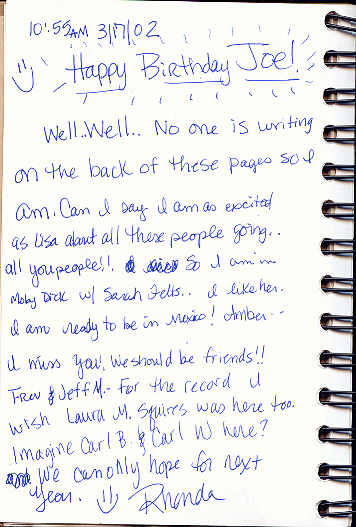 10:55AM 3/17/02
Happy Birthday Joe!
Well..Well.. No one is writing
on the back of these pages so I
am. Can I say I am as excited
as Lisa about all these people going..
all you people!!! So I am in
Moby Dick w/ Sarah Fells.. I like her.
I am ready to be in Mexico! Amber..
I miss you! We should be friends!!
Trev & Jeff M.- For the record I
wish Laura M. Squires was here too.
Imagine Carl B. & Carl W here?
We can only hope for next
year. Rhonda